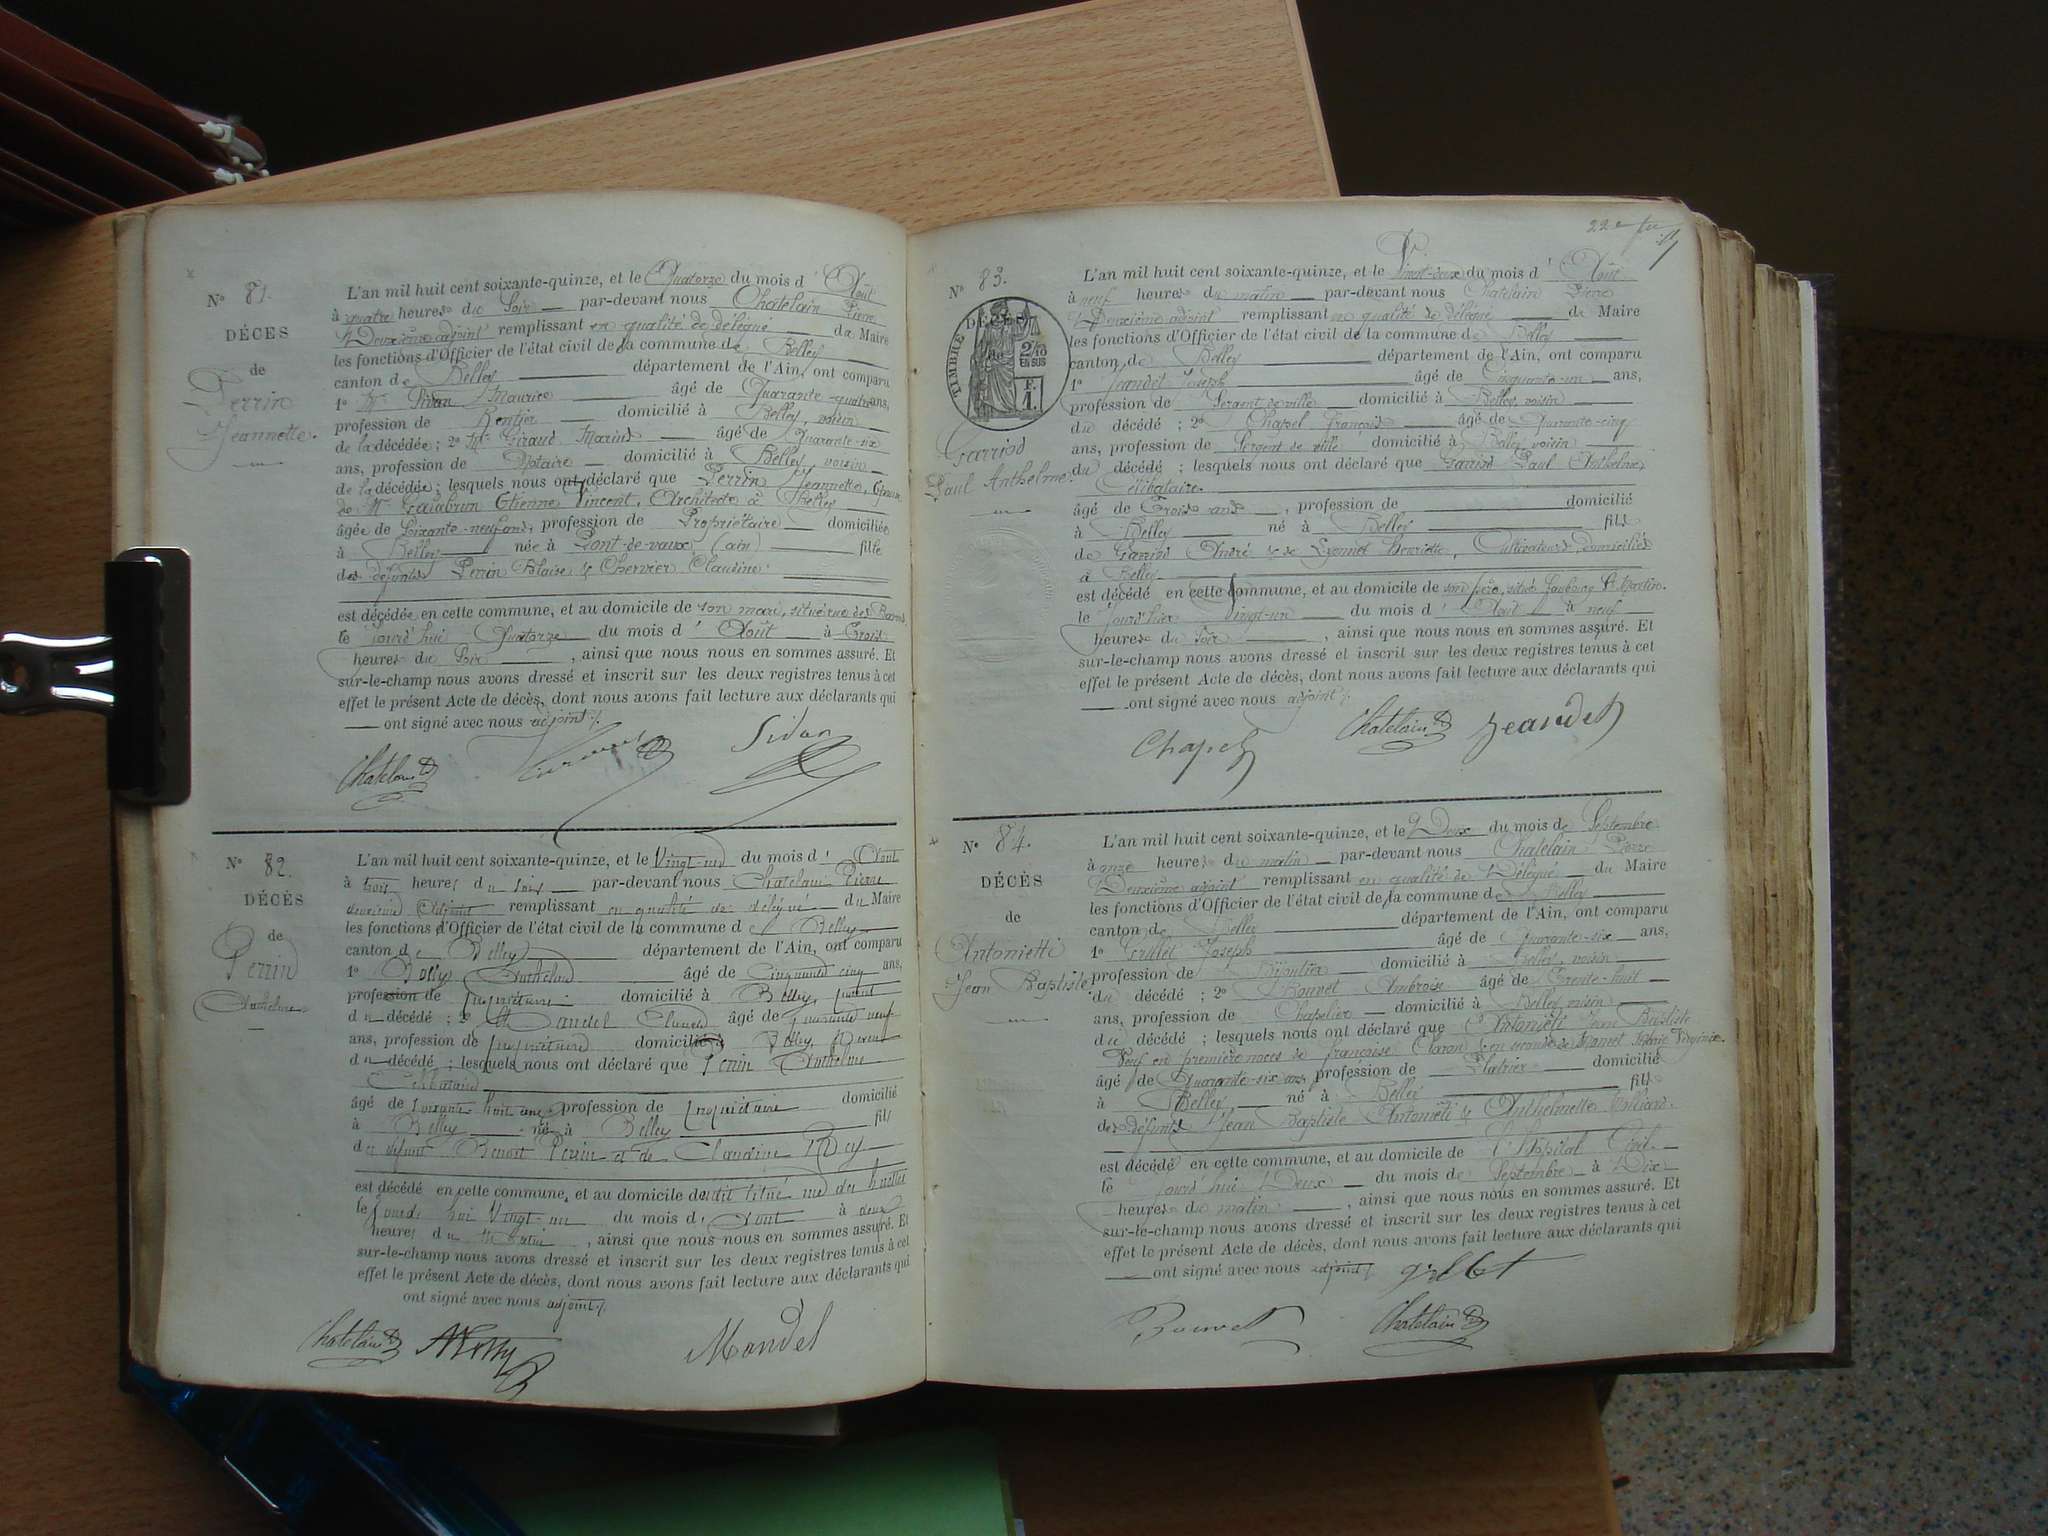 N° 81.
DÉCES
de
Perrin
Jeannette.
L'an mil huit cent soixante-quinze, et le Quatorze du mois d' Août
à quatre heures du Soir par-devant nous Chatelain Pierre
Deuxième adjoint remplissant en qualité de délégué du Maire
les fonctions d'Officier de l'état civil de la commune de Belley
canton de Belley département de l'Ain, ont comparu
1° Mr Sidan Maurice âgé de Quarante-quatre ans,
profession de Rentier domicilié à Belley, voisin
de la décédée ; 2° Mr Giraud Marius âgé de Quarante-six
ans, profession de Notaire domicilié à Belley, voisin
de la décédée ; lesquels nous ont déclaré que Perrin Jeannette, Epouse
de Mr Etienne Vincent, Architecte à Belley
âgée de Soixante-neuf ans, profession de Propriétaire domiciliée
à Belley née à Pont-de-vaux (ain) fille
des défunts Perrin Blaise & Chervier Claudine
est décédée en cette commune, et au domicile de son mari, situé rue des Barons
le jourd'hui Quatorze du mois d' Août à Trois
heures du Soir , ainsi que nous nous en sommes assuré. Et
sur-le-champ nous avons dressé et inscrit sur les deux registres tenus à cet
effet le présent Acte de décès, dont nous avons fait lecture aux déclarants qui
ont signé avec nous adjoint ./.
Chatelain Sidan
N° 82.
DÉCÈS
de
Perrin
Anthelme
L'an mil huit cent soixante-quinze, et le Vingt-un du mois d' Aout
à trois heures du soir par-devant nous Chatelain Pierre
deuxième Adjoint remplissant en qualité de délégué du Maire
les fonctions d'Officier de l'état civil de la commune de Belley
canton de Belley département de l'Ain, ont comparu
1° Anthelme âgé de Cinquante cinq ans,
profession de propriétaire domicilié à Belley, parent
du décédé ; 2° Mandel Claude âgé de quarante neuf
ans, profession de propriétaire domicilié à Belley, Parent
du décédé ; lesquels nous ont déclaré que Perrin Anthelme
Célibataire
âgé de soixante huit ans profession de propriétaire domicilié
à Belley né à Belley fils
des défunt Benoit Perrin et de Claudine Rey
est décédé en cette commune, et au domicile dudit situé rue des
le jourd'hui Vingt-un du mois d' Aout à deux
heures du Matin , ainsi que nous nous en sommes assuré. Et
sur-le-champ nous avons dressé et inscrit sur les deux registres tenus à cet
effet le présent Acte de décès, dont nous avons fait lecture aux déclarants qui
ont signé avec nous adjoint ./.
Chatelain Mandel
N° 83.
DÉCÈS
TIMBRE
2/10
EN SUS
F.
1.
Garriod
Paul Anthelme.
L'an mil huit cent soixante-quinze, et le Vingt-deux du mois d' Août
à neuf heures du matin par-devant nous Chatelain Pierre
Deuxième adjoint remplissant en qualité de délégué de Maire
les fonctions d'Officier de l'état civil de la commune de Belley
canton de Belley département de l'Ain, ont comparu
1° Jeandet Joseph âgé de Cinquante-un ans,
profession de Sergent de ville domicilié à Belley, voisin
du décédé ; 2° Chapel François âgé de Quarante-cinq
ans, profession de Sergent de ville domicilié à Belley, voisin
du décédé ; lesquels nous ont déclaré que Garriod Paul Anthelme
Célibataire.
âgé de Trois ans , profession de domicilié
à Belley né à Belley fils
de Garriod André & de Lyonnet Henriette, Cultivateurs, domiciliés
à Belley
est décédé en cette commune, et au domicile de son père, situé faubourg St Martin.
le Jourd'hier Vingt-un du mois d' Août à neuf
heures du Soir , ainsi que nous nous en sommes assuré. Et
sur-le-champ nous avons dressé et inscrit sur les deux registres tenus à cet
effet le présent Acte de décès, dont nous avons fait lecture aux déclarants qui
ont signé avec nous adjoint ./.
Chapel Chatelain Jeandet
N° 84.
DÉCÈS
de
Antonietti
Jean Baptiste
L'an mil huit cent soixante-quinze, et le Deux du mois de Septembre
à onze heures du matin par-devant nous Chatelain Pierre
Deuxième adjoint remplissant en qualité de Délégué du Maire
les fonctions d'Officier de l'état civil de la commune de Belley
canton de Belley département de l'Ain, ont comparu
1° Joseph âgé de Quarante-six ans,
profession de Bijoutier domicilié à Belley, voisin
du décédé ; 2° Bouvet Ambroise âgé de Trente-huit
ans, profession de Chapelier domicilié à Belley, voisin
du décédé ; lesquels nous ont déclaré que Antonietti Jean Baptiste
Veuf en premières noces de françoise & en seconde de Mamet Marie Virginie.
âgé de Quarante-six ans, profession de Platrier domicilié
à Belley né à Belley fils
des défunts Jean Baptiste Antonietti & Anthelmette
est décédé en cette commune, et au domicile de l'Hôpital Civil
le jourd'hui Deux du mois de Septembre à Dix
heures du matin , ainsi que nous nous en sommes assuré. Et
sur-le-champ nous avons dressé et inscrit sur les deux registres tenus à cet
effet le présent Acte de décès, dont nous avons fait lecture aux déclarants qui
ont signé avec nous adjoint ./.
Bouvet Chatelain